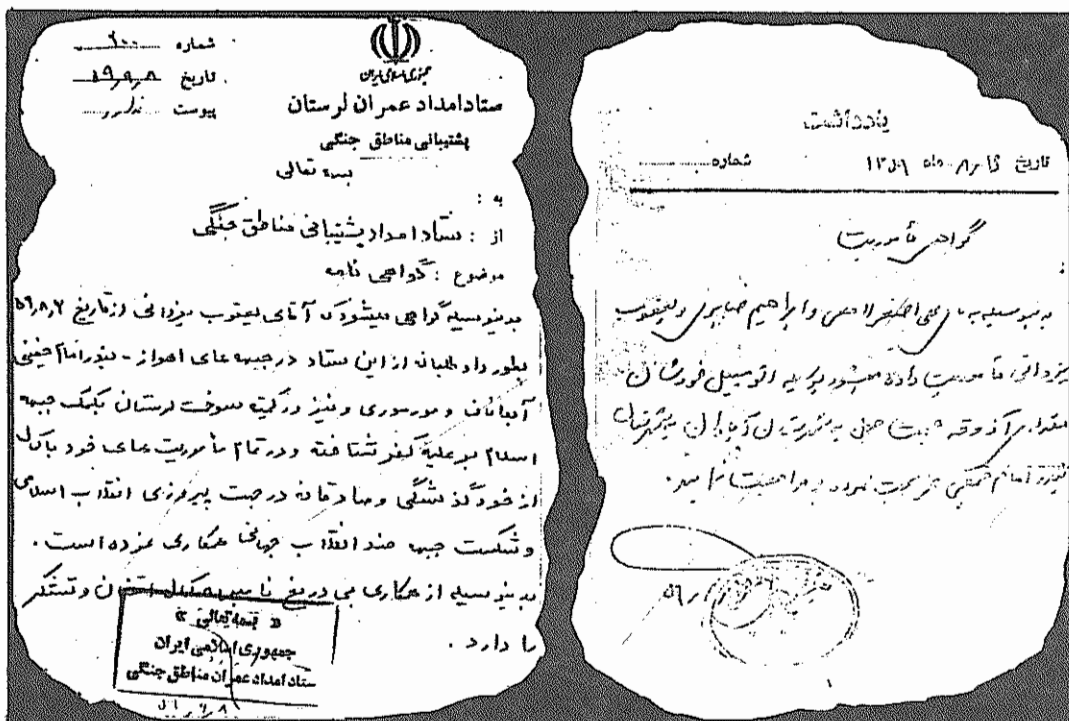 شماره ۲۰۰
تاریخ ۵۹٫۹٫۸
پیوست ندارد
جمهوری اسلامی ایران
ستاد امداد عمران لرستان
پشتیبانی مناطق جنگی
بسمه تعالی
به :
از : ستاد امداد پشتیبانی مناطق جنگی
موضوع : گواهی نامه
بدینوسیله گواهی میشود که آقای یعقوب یزدانی از تاریخ ۵۹٫۸٫۷
بطور داوطلبانه از این ستاد در جبهه های اهواز - بندر امام خمینی
آبادانان و مورموری و نیز در کمیته سوخت لرستان بکمک جبهه
اسلام بر علیه کفر شتافته و در تمام مأموریت های خود با کمال
از خود گذشتگی و صادقانه در جهت پیروزی انقلاب اسلامی
و شکست جبهه ضد انقلاب جهانی همکاری نموده است .
بدینوسیله از همکاری بی دریغ نامبرده کمال امتنان و تشکر
را دارد .
« بسمه تعالی »
جمهوری اسلامی ایران
ستاد امداد عمران مناطق جنگی
۵۹٫۹٫۸
یادداشت
تاریخ ماه ۱۳۵۹ شماره
گواهی مأموریت
بدینوسیله به علی اصغر و ابراهیم و یعقوب
یزدانی مأموریت داده میشود بوسیله اتومبیل خودشان
مقداری آذوقه جهت حمل به
بندر امام خمینی حرکت نموده به مراجعت نمایند .
۱